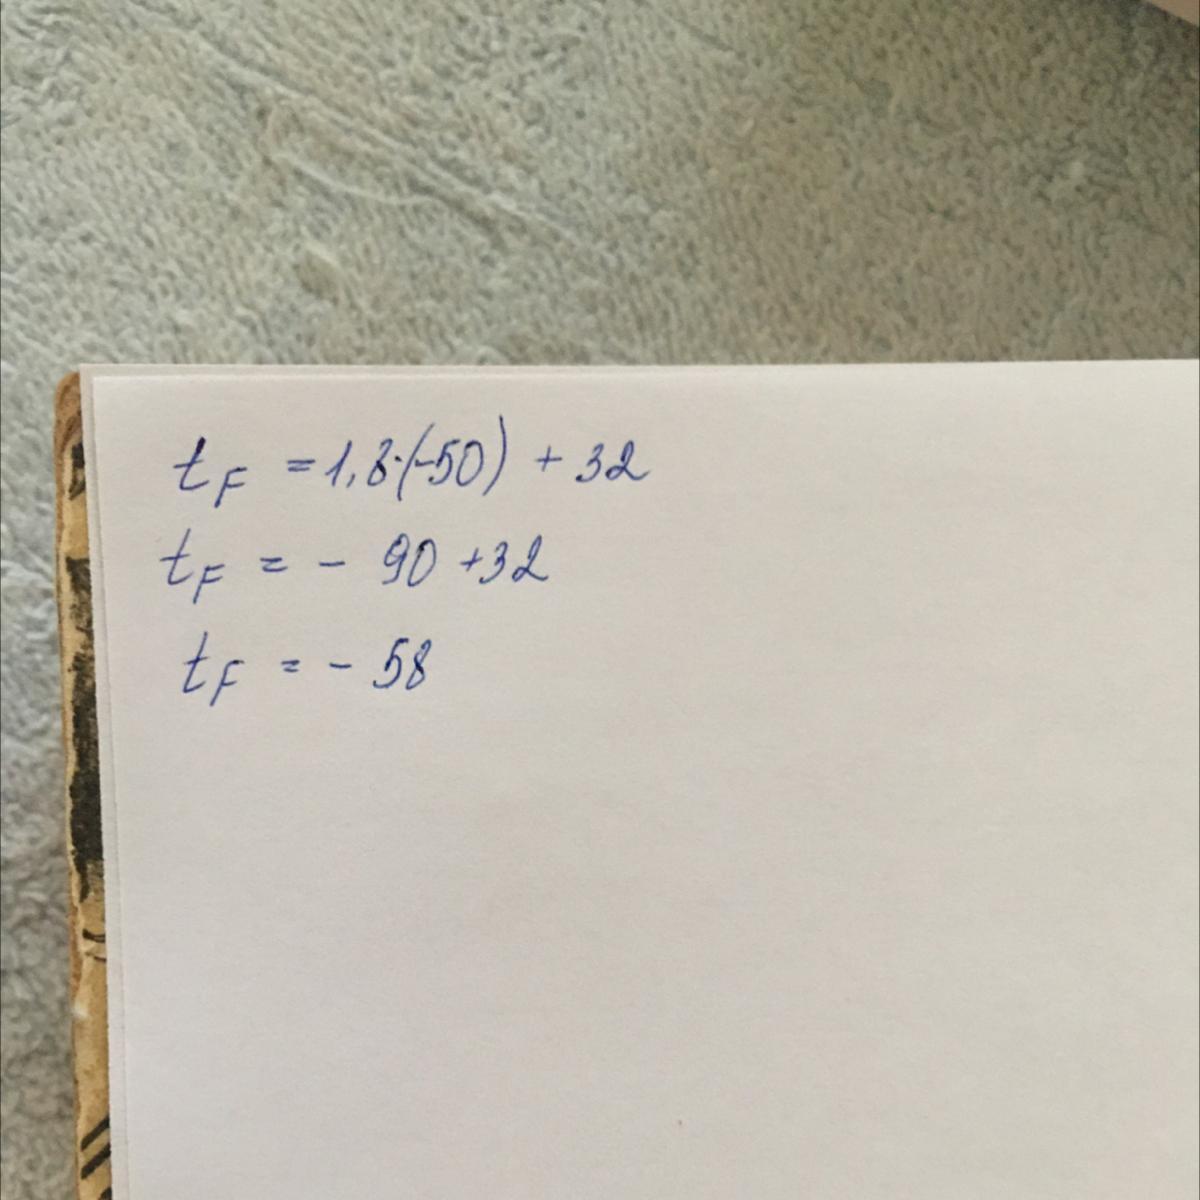 t_F = 1,8·(-50) + 32
t_F = - 90 +32
t_F = - 58